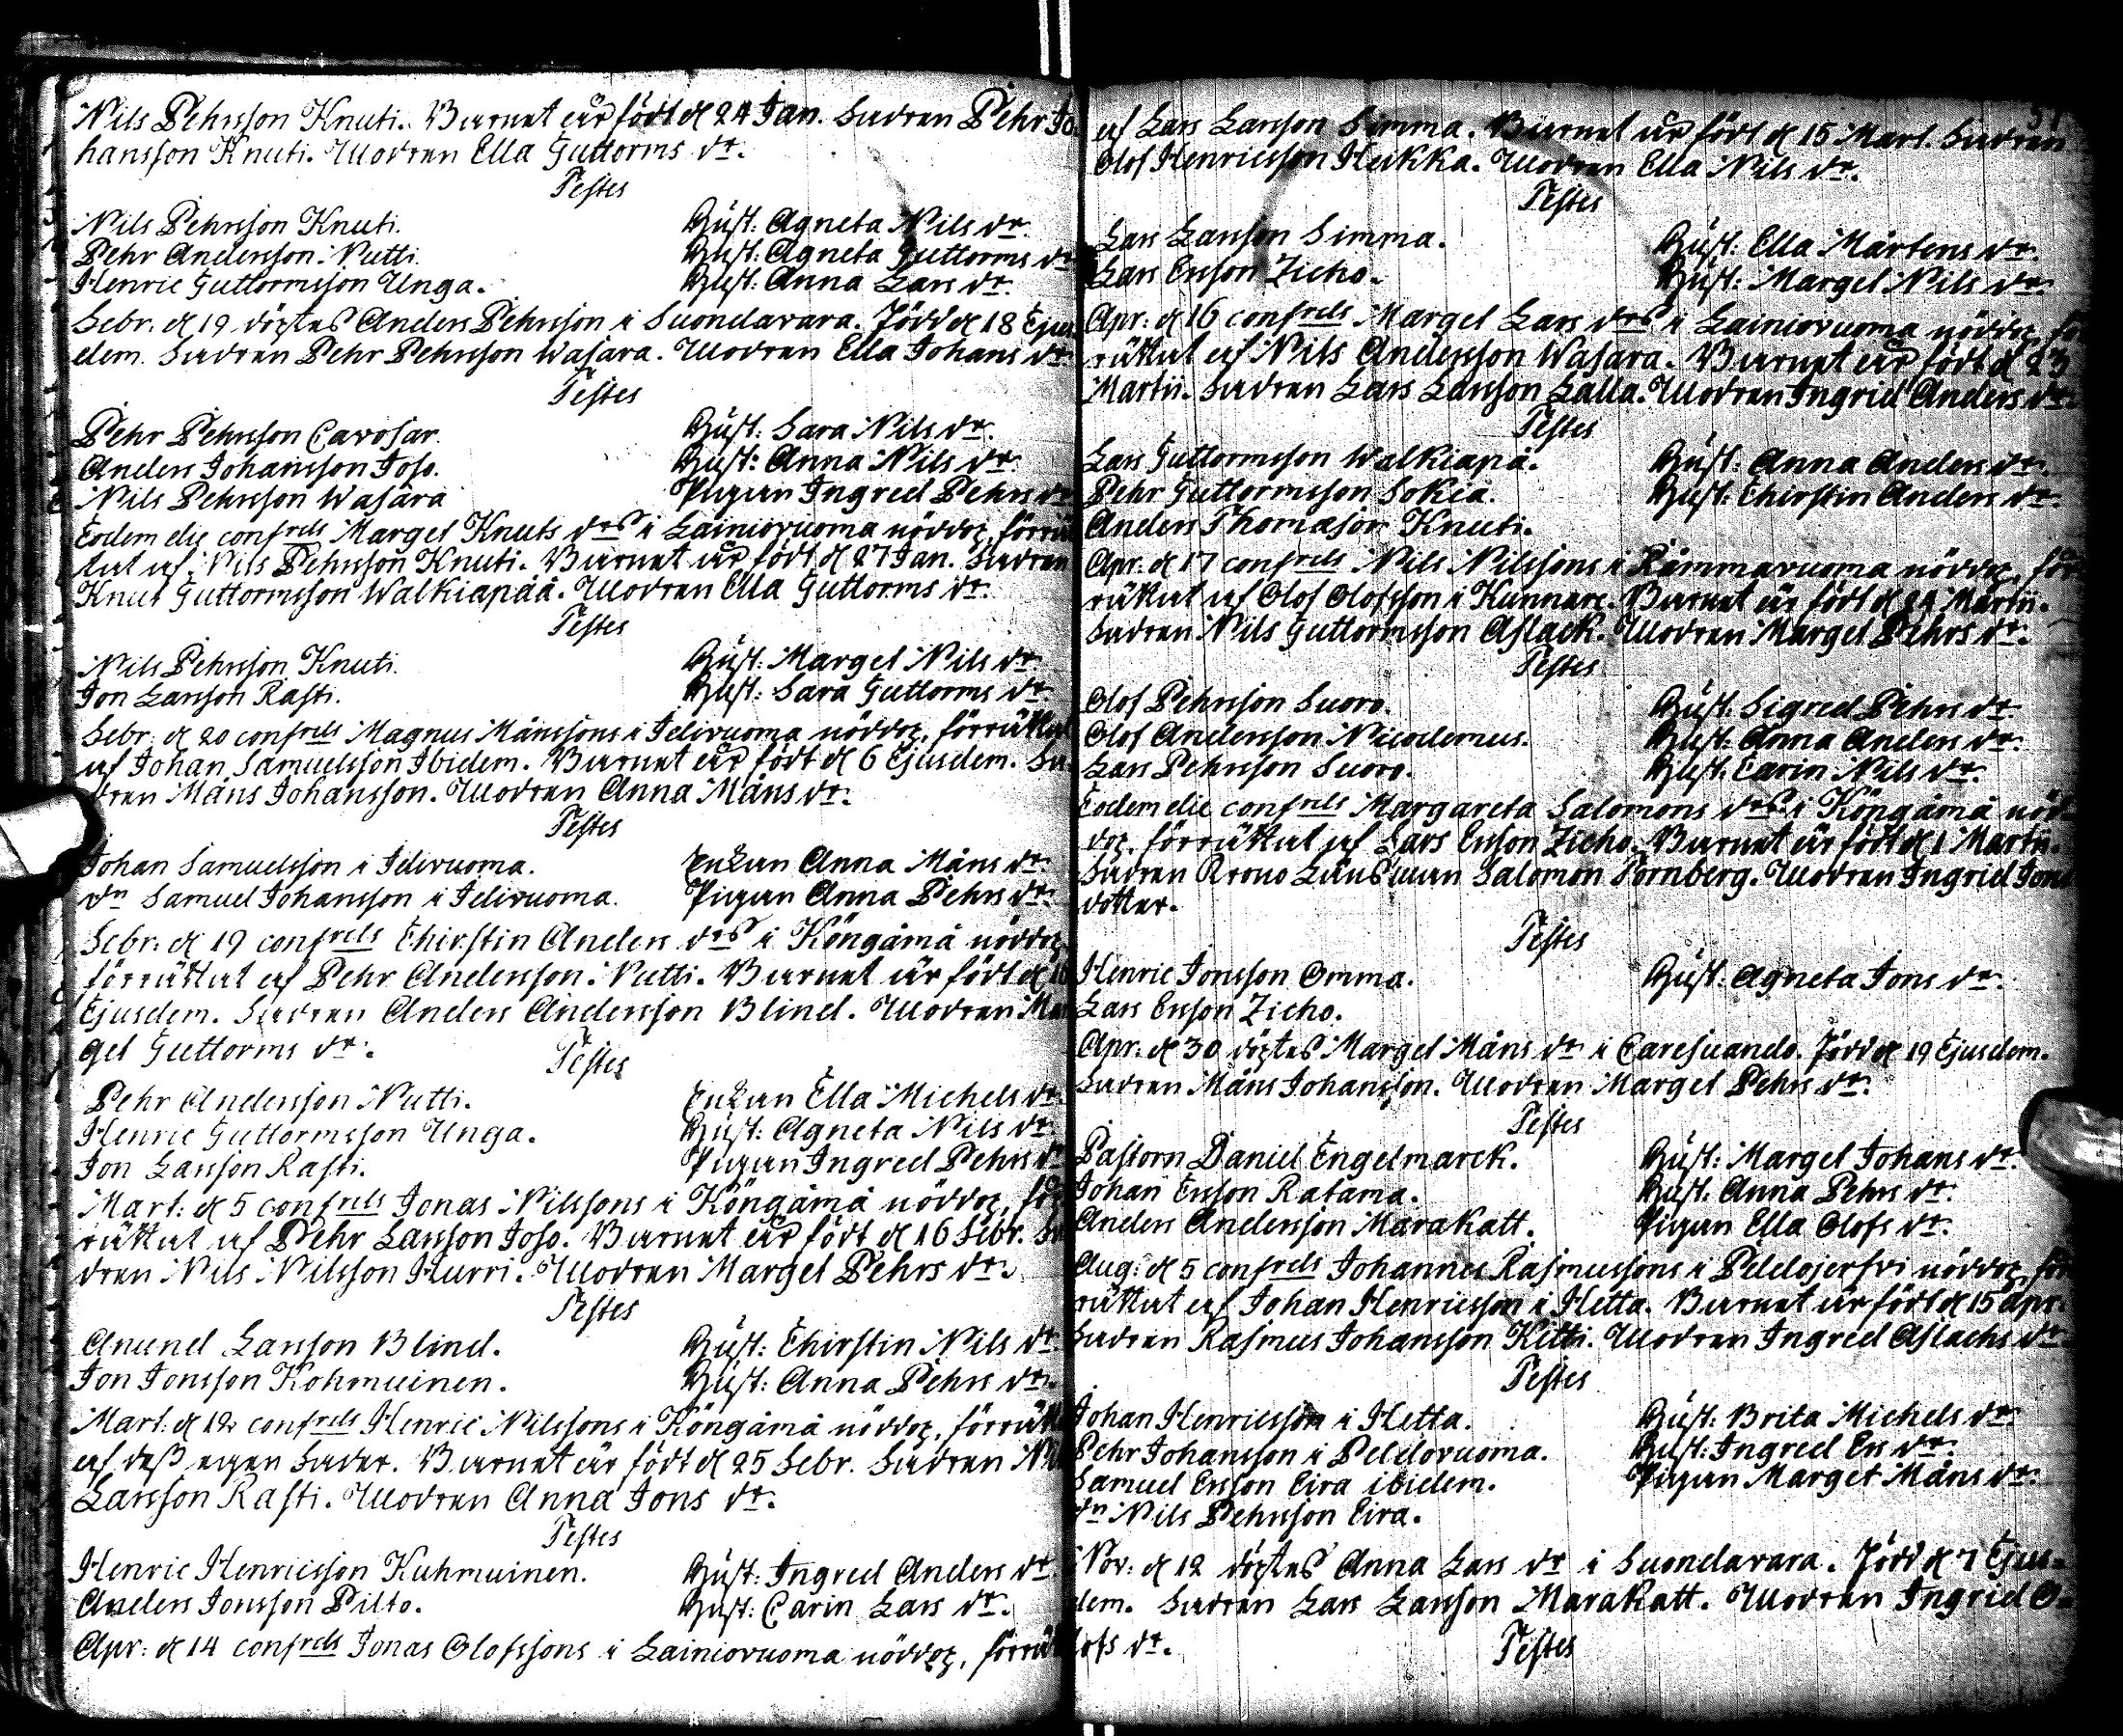 Nils Pehrsson Knuti. Barnet är födt d 24 Jan. Fadren Pehr Jo-
hansson Knuti. Modren Ella Guttorms dr.
Testes
Nils Pehrsson Knuti. Hust: Agneta Nils dr.
Pehr Andersson Nutti. Hust: Agneta Guttorms dr
Henric Guttormsson Unga. Hust: Anna Lars dr.
Febr: d 19 döptes Anders Pehrsson i Suondavara. Född d 18 Ejus
dem. Fadren Pehr Pehrsson Wasara. Modren Ella Johans dr
Testes
Pehr Pehrsson Cavosar. Hust: Sara Nils dr.
Anders Johansson Joso. Hust: Anna Nils dr.
Nils Pehrsson Wasara Pigan Ingred Pehrs dr
Eodem die confrels Marget Knuts drs i Lainiovuoma nöddop, förrät
tat af Nils Pehrsson Knuti. Barnet är födt d 27 Jan. Fadren
Knut Guttormsson Walkiapää. Modren Ella Guttorms dr.
Testes
Nils Pehrsson Knuti. Hust: Marget Nils dr
Jon Larsson Rasti. Hust: Sara Guttorms dr
Febr: d 20 confrels Magnus Månssons i Idivuoma nöddop, förrättat
af Johan Samuelsson Ibidem. Barnet är födt d 6 Ejusdem. Fa-
dren Måns Johansson. Modren Anna Måns dr.
Testes
Johan Samuelsson i Idivuoma. Enkan Anna Måns dr.
Dn Samuel Johansson i Idivuoma. Pigan Anna Pehrs dr.
Febr: d 19 confrels Chirstin Anders drs i Köngämä nöddop
förrättat af Pehr Andersson Nutti. Barnet är födt d
Ejusdem. Fadren Anders Andersson Blind. Modren Mar
get Guttorms dr.
Testes
Pehr Andersson Nutti. Enkan Ella Michels dr.
Henric Guttormsson Unga. Hust: Agneta Nils dr
Jon Larsson Rasti. Pigan Ingred Pehrs dr
Mart: d 5 confrels Jonas Nilssons i Köngämä nöddop, för
rättat af Pehr Larsson Joso. Barnet är födt d 16 Febr. Fa
dren Nils Nilsson Hurri. Modren Marget Pehrs dr.
Testes
Anund Larsson Blind. Hust: Chirstin Nils dr
Jon Jonsson Kohmuinen. Hust: Anna Pehrs dr.
Mart: d 12 confrels Henric Nilssons i Köngämä nöddop, förrätt
af dess egen Fader. Barnet är födt d 25 Febr. Fadren Nils
Larsson Rasti. Modren Anna Jons dr.
Testes
Henric Henricsson Kuhmuinen. Hust: Ingred Anders dr
Anders Jonsson Pilto. Hust: Carin Lars dr.
Apr: d 14 confrels Jonas Olofssons i Lainiovuoma nöddop, förrätt
af Lars Larsson Simma. Barnet är födt d 15 Mart. Fadren
Olof Henricsson Heikka. Modren Ella Nils dr.
Testes
Lars Larsson Simma. Hust: Ella Mårtens dr.
Lars Ersson Zicko. Hust: Marget Nils dr.
Apr: d 16 confrels Marget Lars drs i Lainiovuoma nöddop, för
rättat af Nils Andersson Wasara. Barnet är födt d 23
Martii. Fadren Lars Larsson Lalla. Modren Ingrid Anders dr
Testes
Lars Guttormsson Walkiapä. Hust: Anna Anders dr.
Pehr Guttormsson Sokia. Hust: Chirstin Anders dr.
Anders Thomason Knuti.
Apr: d 17 confrels Nils Nilssons i Römmavuoma nöddop, för
rättat af Olof Olofsson i Kunnare. Barnet är födt d 24 Martii.
Fadren Nils Guttormsson Aslack. Modren Marget Pehrs dr.
Testes
Olof Pehrsson Suoro. Hust: Sigred Pehrs dr.
Olof Andersson Nicodemus. Hust: Anna Anders dr.
Lars Pehrsson Suoro. Hust: Carin Nils dr.
Eodem die confrels Margareta Salomons drs i Köngämä nöd-
dop, förrättat af Lars Ersson Zicko. Barnet är födt d 1 Martii.
Fadren Krono Länsman Salomon Tornberg. Modren Ingrid Jons
dotter.
Testes
Henric Jonsson Omma. Hust: Agneta Jons dr.
Lars Ersson Zicko.
Apr: d 30 döptes Marget Måns dr i Caresuando. Född d 19 Ejusdem.
Fadren Måns Johansson. Modren Marget Pehrs dr.
Testes
Pastorn Daniel Engelmarck. Hust: Marget Johans dr.
Johan Ersson Ratama. Hust: Anna Pehrs dr.
Anders Andersson Marakatt. Pigan Ella Olofs dr.
Aug: d 5 confrels Johannes Rasmussons i Peldojerfvi nöddop, för
rättat af Johan Henricsson i Hetta. Barnet är födt d 15 Apr.
Fadren Rasmus Johansson Kitti. Modren Ingred Aslachs dr
Testes
Johan Henricsson i Hetta. Hust: Brita Michels dr
Pehr Johansson i Peldovuoma. Hust: Ingred Ers dr.
Samuel Ersson Eira ibidem. Pigan Marget Måns dr.
Dn Nils Pehrsson Eira.
Nov: d 12 döptes Anna Lars dr i Suondavara. Född d 7 Ejus-
dem. Fadren Lars Larsson Marakatt. Modren Ingrid O-
lofs dr.
Testes